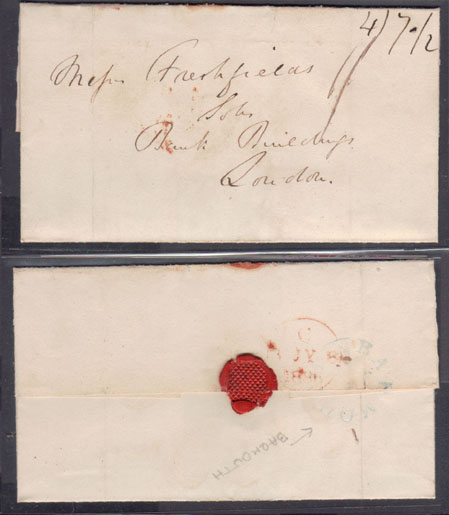 4/7 1/2
Messrs Freshfields
Sols
Bank Buildings
London.
JY
BAR
BARMOUTH